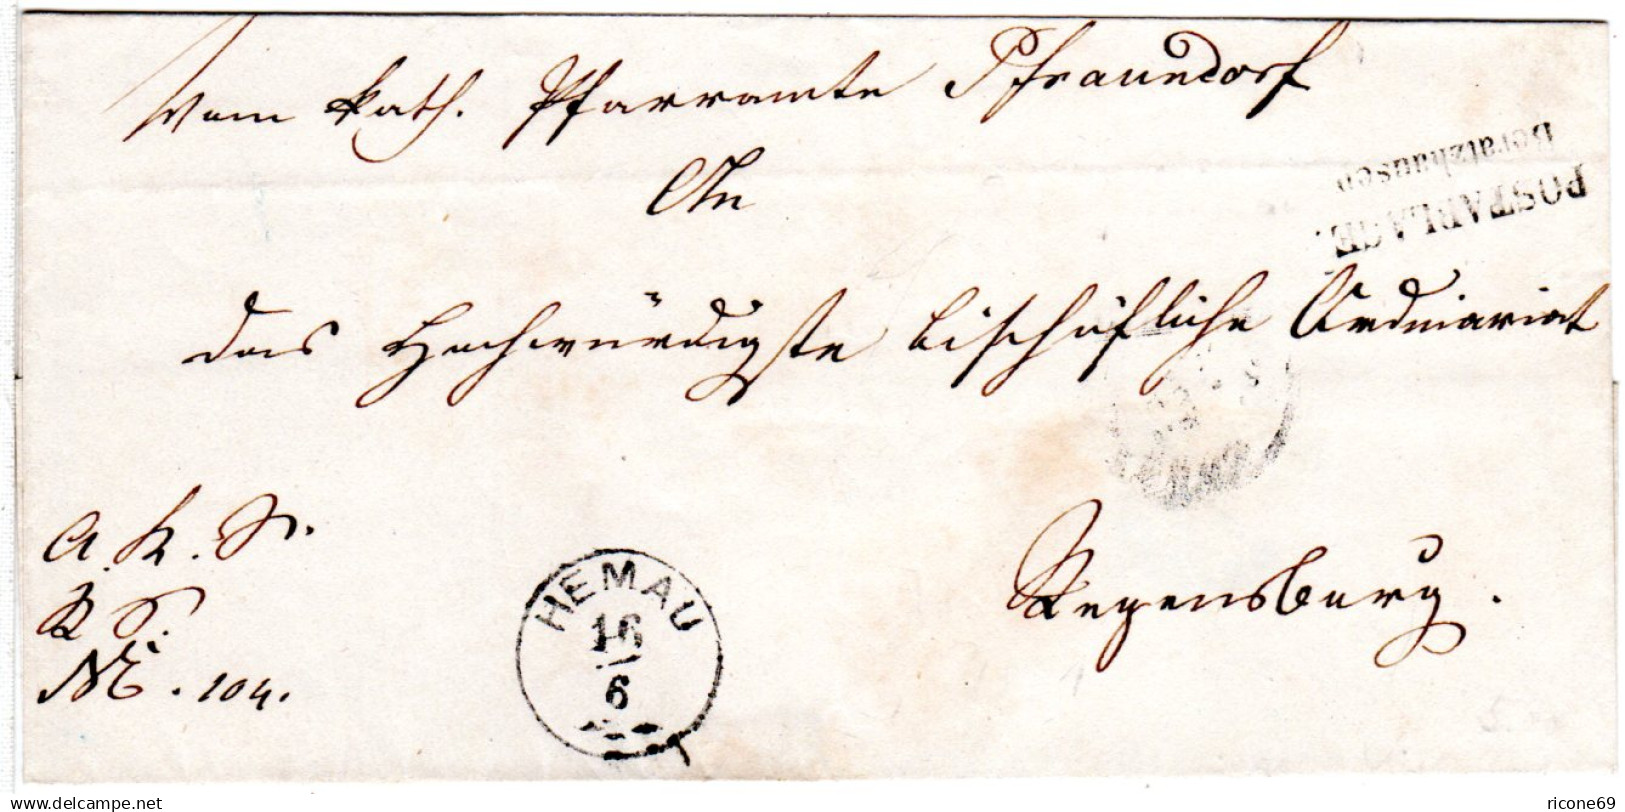 Vom kath. Pfarramte Pfraundorf
An
POSTABLAGE.
Beratzhausen
das Hochwürdigste bischöfliche Ordinariat
Regensburg.
R. S.
№. 104.
HEMAU
16
6
www.delcampe.net
ricone69